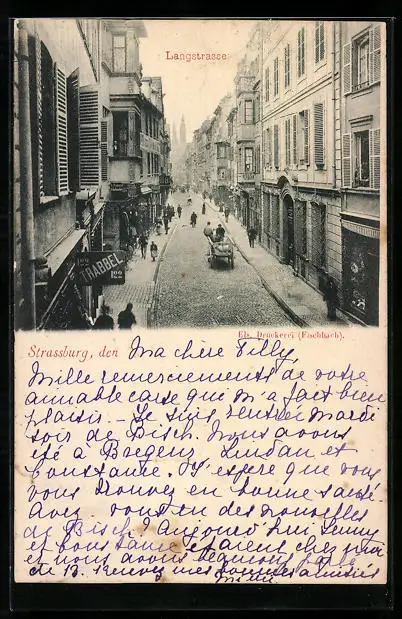 Langstrasse
122 TRABBEL 122
Els. Druckerei (Fischbach).
Strassburg, den Ma chère Filly,
Mille remerciements de votre
aimable carte qui m'a fait bien
plaisir. - Je suis rentrée mardi
soir de Bisch. Nous avons
été à Bregenz, Lindau et
Constance. J'espère que vous
vous trouvez en bonne santé.
Avez-vous eu des nouvelles
de Bisch? Aujourd'hui Jenny
et étaient chez moi
et nous avons beaucoup parlé
de B. Recevez mes amitiés